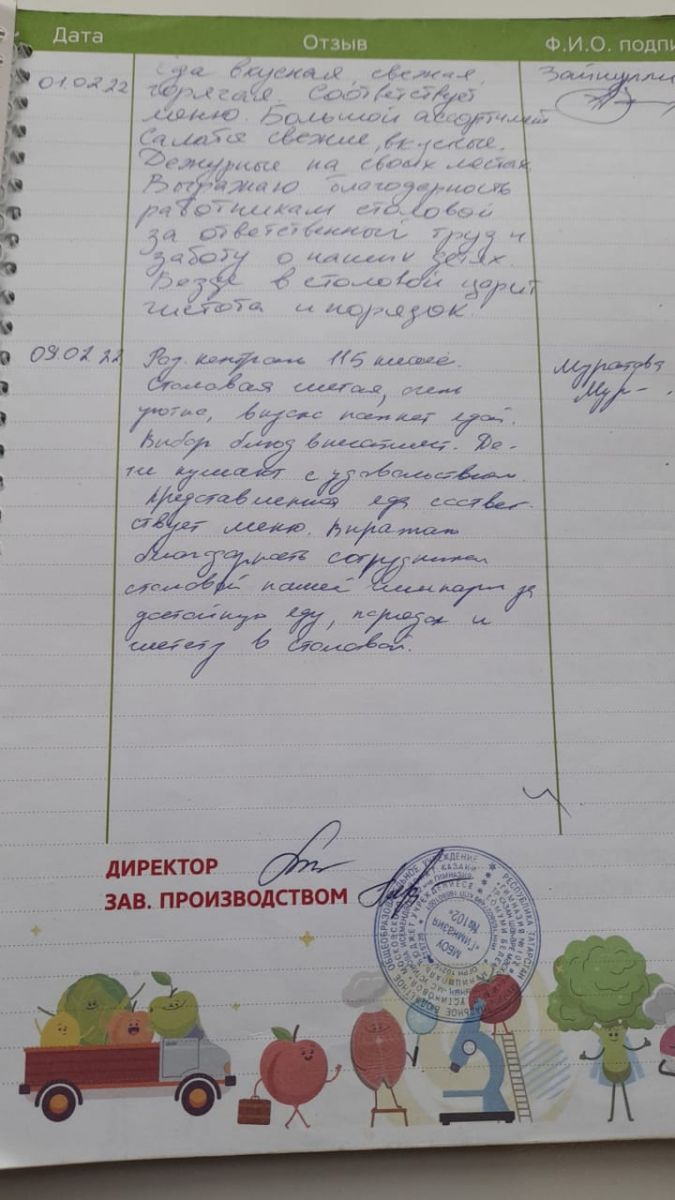 Дата Отзыв Ф.И.О. подпи
01.02.22 Еда вкусная, свежая, Зайнулли
горячая. Соответствует
меню. Большой ассортимент
Салаты свежие, вкусные.
Дежурные на своих местах.
Выражаю благодарность
работникам столовой
за ответственный труд и
заботу о наших детях.
Везде в столовой царит
чистота и порядок.
09.02.22 Род. контроль 115 Муратова
Столовая чистая, очень Мур-
уютно, вкусно пахнет едой.
Выбор блюд впечатляет. Де-
ти кушают с удовольствием.
Представленная еда соответ-
ствует меню. Выражаю
благодарность сотрудникам
столовой нашей гимназии за
достойную еду, порядок и
чистоту в столовой.
ДИРЕКТОР
ЗАВ. ПРОИЗВОДСТВОМ
РЕСПУБЛИКА ТАТАРСТАН
МБОУ
«Гимназия
№102»